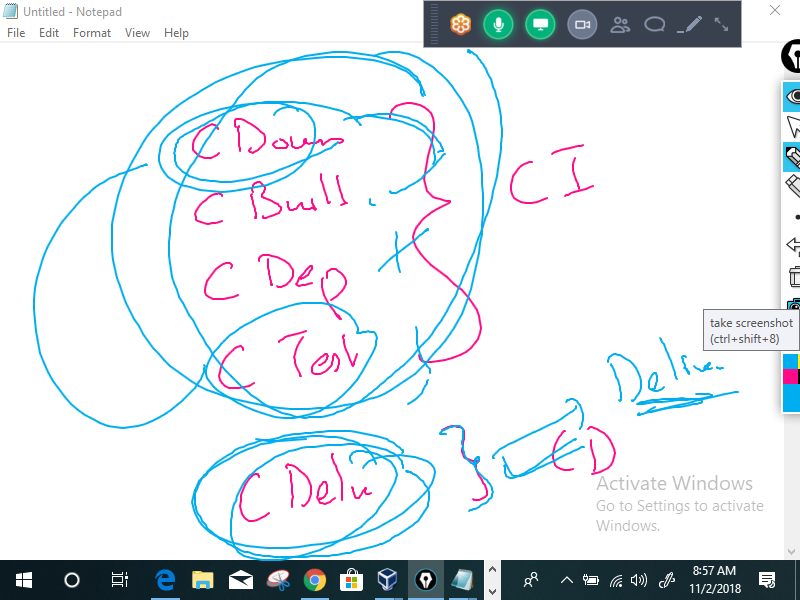 Untitled - Notepad
File Edit Format View Help
C Down
C Buill
C Dep
C Test
CI
take screenshot
(ctrl+shift+8)
Deliver
C Deliv
CD
Activate Windows
Go to Settings to activate
Windows.
8:57 AM
11/2/2018